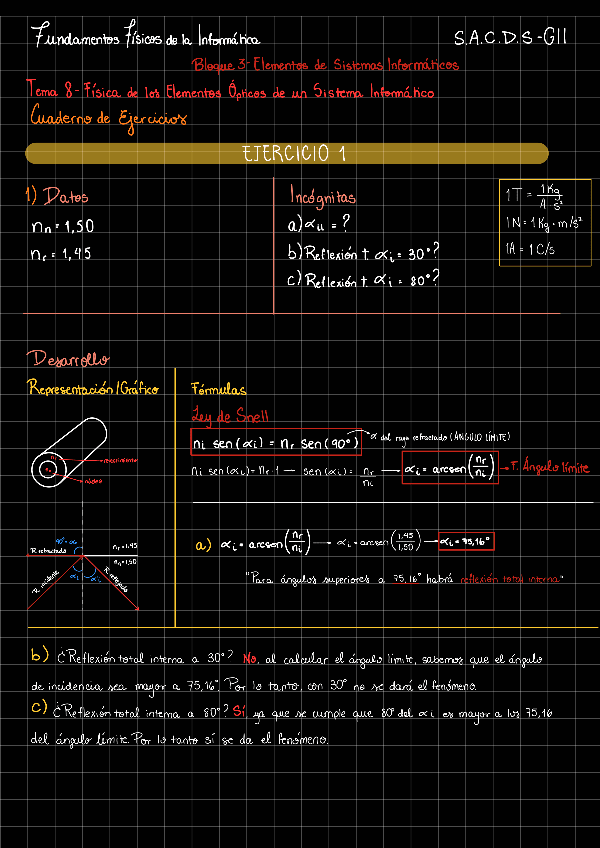 Fundamentos Físicos de la Informática
S.A.C.D.S-GII
Bloque 3-Elementos de Sistemas Informáticos
Tema 8-Física de los Elementos Ópticos de un Sistema Informático
Cuaderno de Ejercicios
EJERCICIO 1
1) Datos
nn = 1,50
nr = 1,45
Incógnitas
a) αu = ?
b) Reflexión t αi = 30°?
c) Reflexión t. αi = 80°?
1T = 1Kg / A s²
1N = 1Kg · m/s²
1A = 1 C/s
Desarrollo
Representación/Gráfico
recubrimiento
núcleo
90° = αr
R. refractado
nr = 1,45
nn = 1,50
αi αi
R. incidente
R. reflejado
Fórmulas
Ley de Snell
ni sen(αi) = nr sen(90°)
α del rayo refractado (ÁNGULO LÍMITE)
ni sen(αi) = nr · 1 — sen(αi) = nr/ni → αi = arcsen(nr/ni) → F. Ángulo límite
a) αi = arcsen(nr/ni) → αi = arcsen(1,45/1,50) → αi = 75,16°
"Para ángulos superiores a 75,16° habrá reflexión total interna"
b) ¿Reflexión total interna a 30°? No, al calcular el ángulo límite, sabemos que el ángulo
de incidencia sea mayor a 75,16°. Por lo tanto, con 30° no se dará el fenómeno.
c) ¿Reflexión total interna a 80°? Sí, ya que se cumple que 80° del αi es mayor a los 75,16
del ángulo límite. Por lo tanto sí se da el fenómeno.